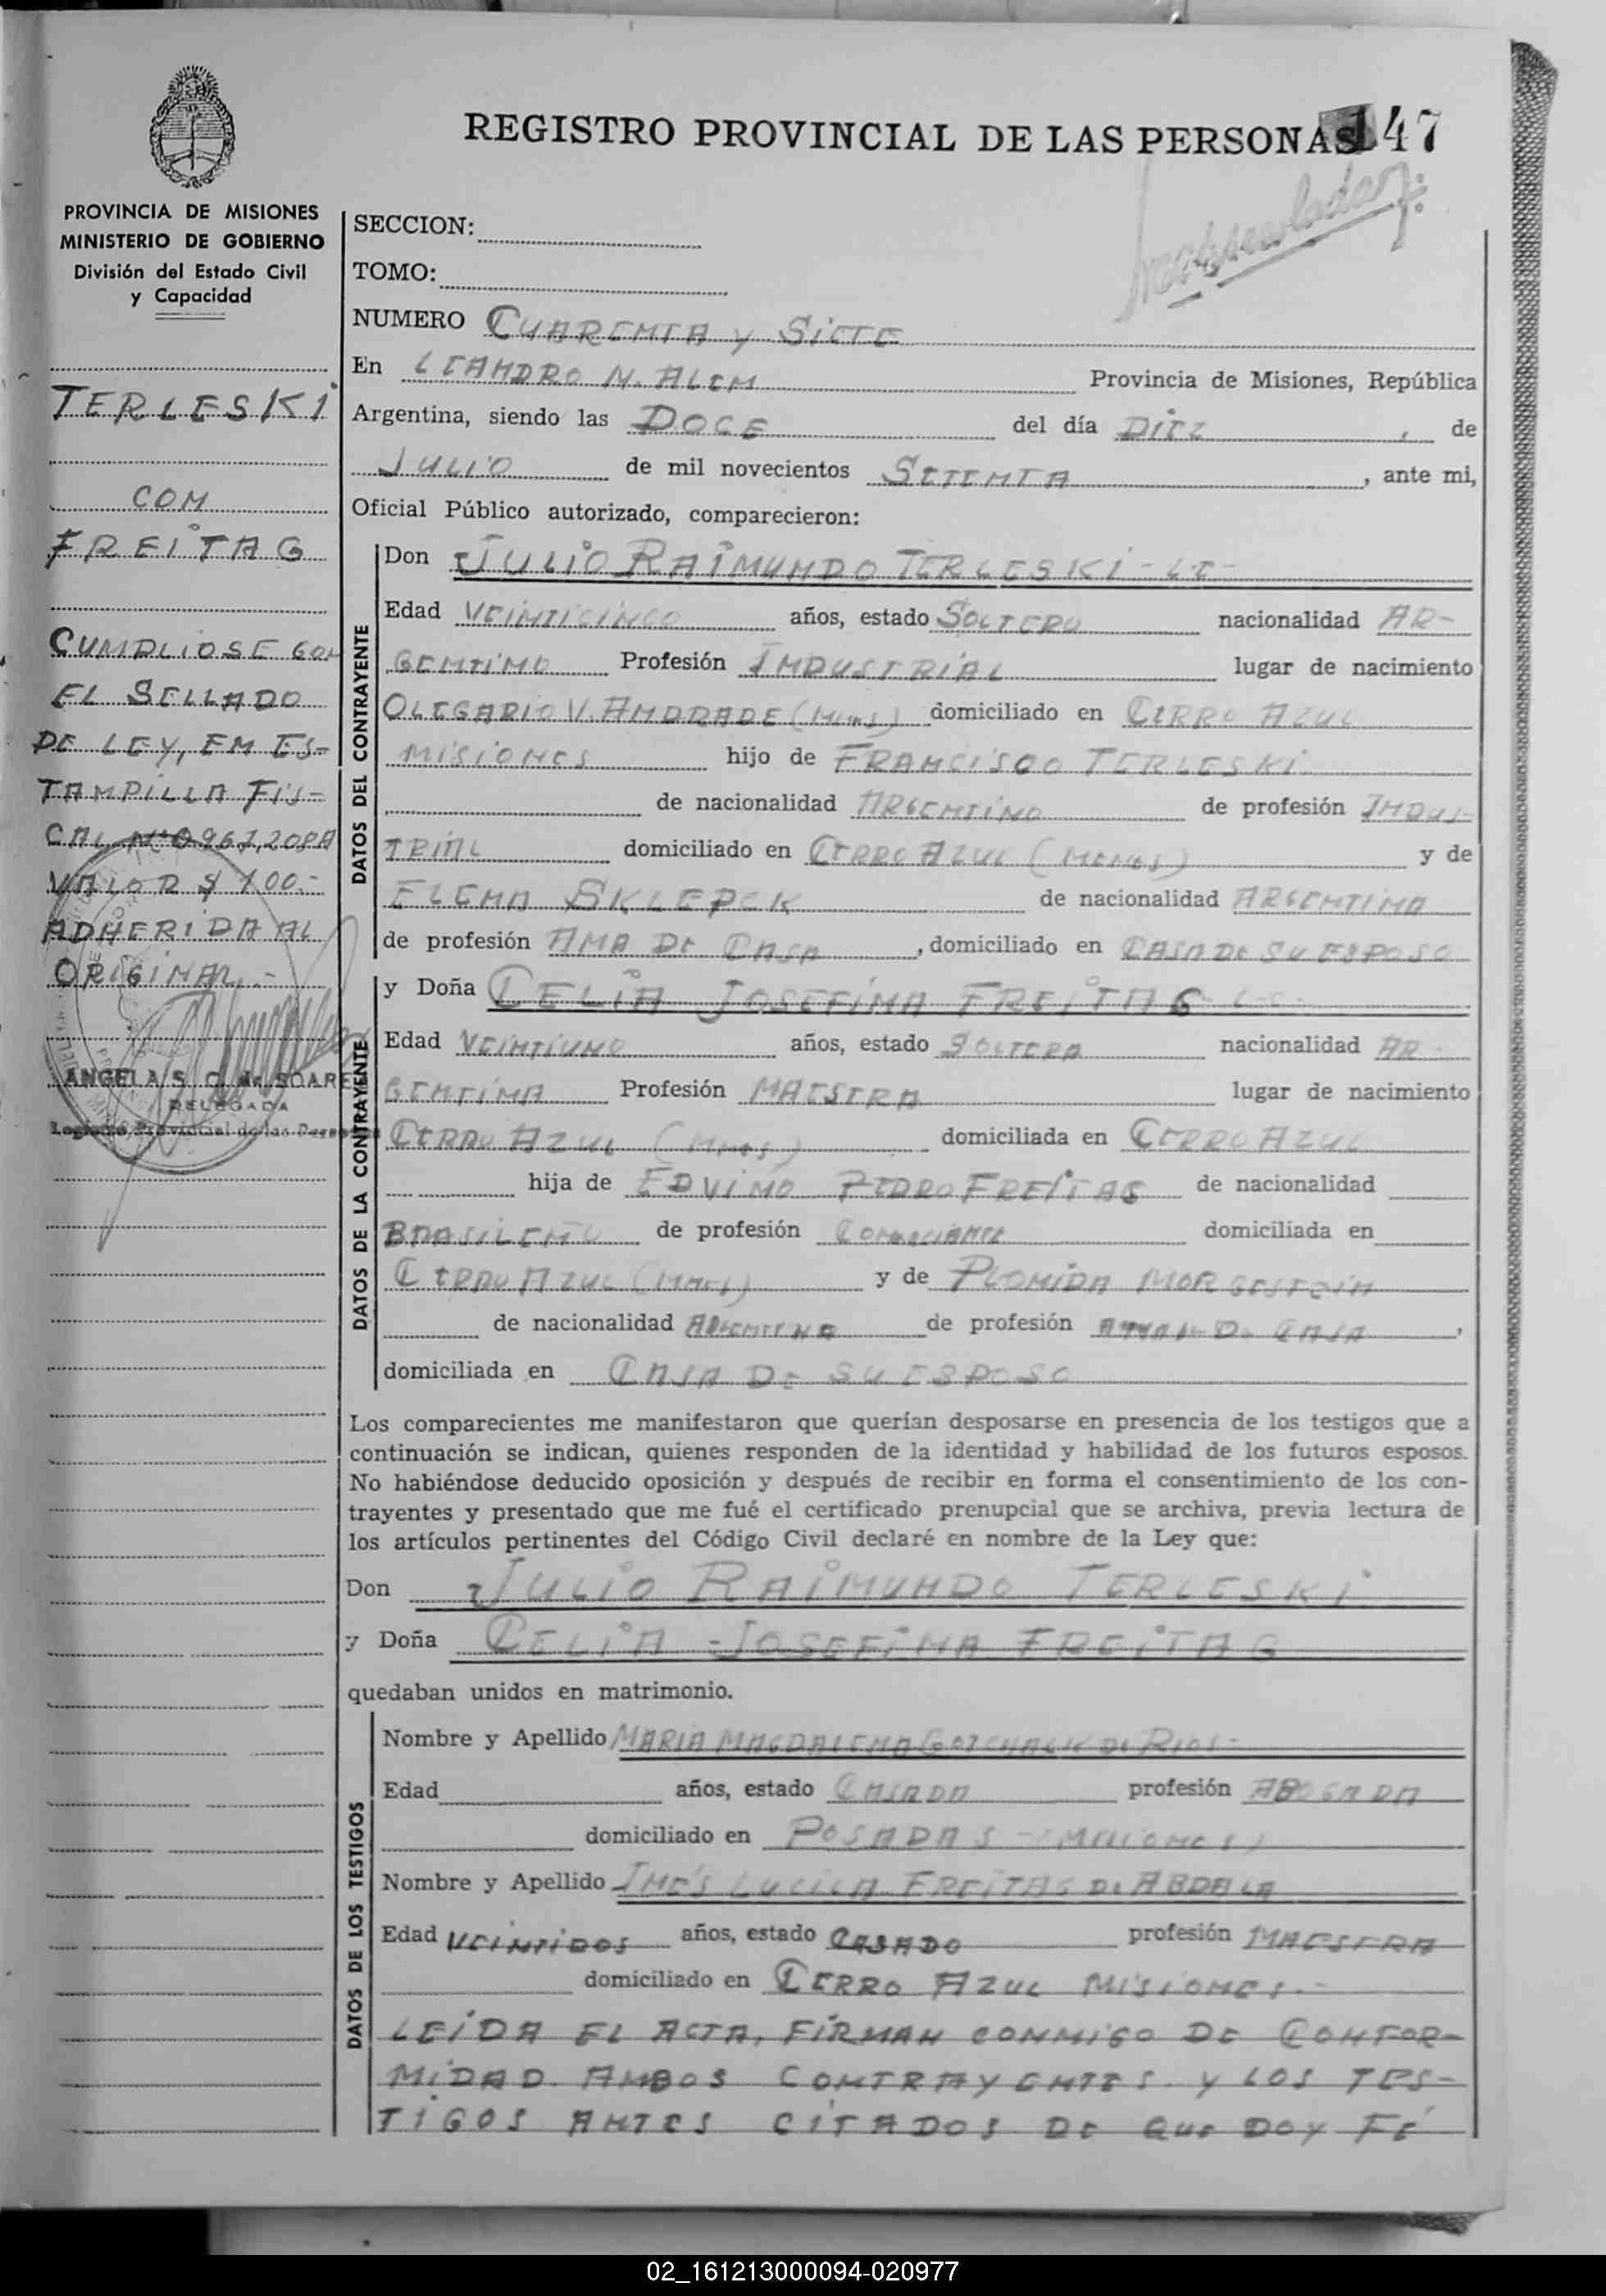 REGISTRO PROVINCIAL DE LAS PERSONAS 147
PROVINCIA DE MISIONES
MINISTERIO DE GOBIERNO
División del Estado Civil
y Capacidad
TERLESKI
CON
FREITAG
CUMPLIOSE CON
EL SELLADO
DE LEY, EN ES-
TAMPILLA FIS-
CAL Nº 0967,208A
VALOR $ 100.-
ADHERIDA AL
ORIGINAL.-
ANGELA S. C. de SOARE
DELEGADA
Provincial de las
SECCION:
TOMO:
NUMERO CUARENTA Y SIETE
En LEANDRO N. ALEM Provincia de Misiones, República
Argentina, siendo las DOCE del día DIEZ, de
JULIO de mil novecientos SETENTA, ante mi,
Oficial Público autorizado, comparecieron:
DATOS DEL CONTRAYENTE
Don JULIO RAIMUNDO TERLESKI
Edad VEINTICINCO años, estado SOLTERO nacionalidad AR-
GENTINO Profesión INDUSTRIAL lugar de nacimiento
OLEGARIO V. ANDRADE (Mnes) domiciliado en CERRO AZUL
MISIONES hijo de FRANCISCO TERLESKI
de nacionalidad ARGENTINO de profesión INDUS-
TRIAL domiciliado en CERRO AZUL (MNES) y de
ELENA SKLEPEK de nacionalidad ARGENTINA
de profesión AMA DE CASA, domiciliado en CASA DE SU ESPOSO
DATOS DE LA CONTRAYENTE
y Doña CELIA JOSEFINA FREITAG
Edad VEINTIUNO años, estado SOLTERA nacionalidad AR-
GENTINA Profesión MAESTRA lugar de nacimiento
CERRO AZUL (Mnes) domiciliada en CERRO AZUL
hija de EDVINO PEDRO FREITAG de nacionalidad
BRASILEÑO de profesión COMERCIANTE domiciliada en
CERRO AZUL (Mnes) y de MORGESTEIN
de nacionalidad ARGENTINA de profesión AMA DE CASA,
domiciliada en CASA DE SU ESPOSO
Los comparecientes me manifestaron que querían desposarse en presencia de los testigos que a
continuación se indican, quienes responden de la identidad y habilidad de los futuros esposos.
No habiéndose deducido oposición y después de recibir en forma el consentimiento de los con-
trayentes y presentado que me fué el certificado prenupcial que se archiva, previa lectura de
los artículos pertinentes del Código Civil declaré en nombre de la Ley que:
Don JULIO RAIMUNDO TERLESKI
y Doña CELIA JOSEFINA FREITAG
quedaban unidos en matrimonio.
DATOS DE LOS TESTIGOS
Nombre y Apellido MARIA MAGDALENA GOTCHALK DE RIOS-
Edad años, estado CASADA profesión ABOGADA
domiciliado en POSADAS - (MISIONES)
Nombre y Apellido INÉS LUCILA FREITAG DE ABDALA
Edad VEINTIDOS años, estado CASADO profesión MAESTRA
domiciliado en CERRO AZUL MISIONES.-
LEIDA EL ACTA, FIRMAN CONMIGO DE CONFOR-
MIDAD AMBOS CONTRAYENTES Y LOS TES-
TIGOS ANTES CITADOS DE QUE DOY FÉ
02_161213000094-020977